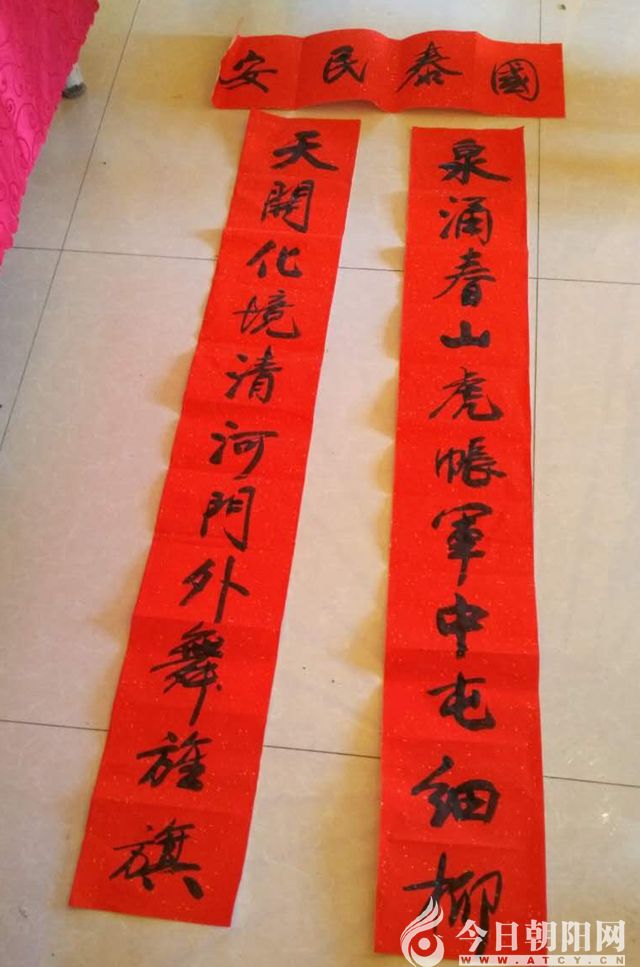 國泰民安
泉涌春山虎帳軍中屯细柳
天開化境清河門外舞旌旗
今日朝阳网
WWW.ATCY.CN